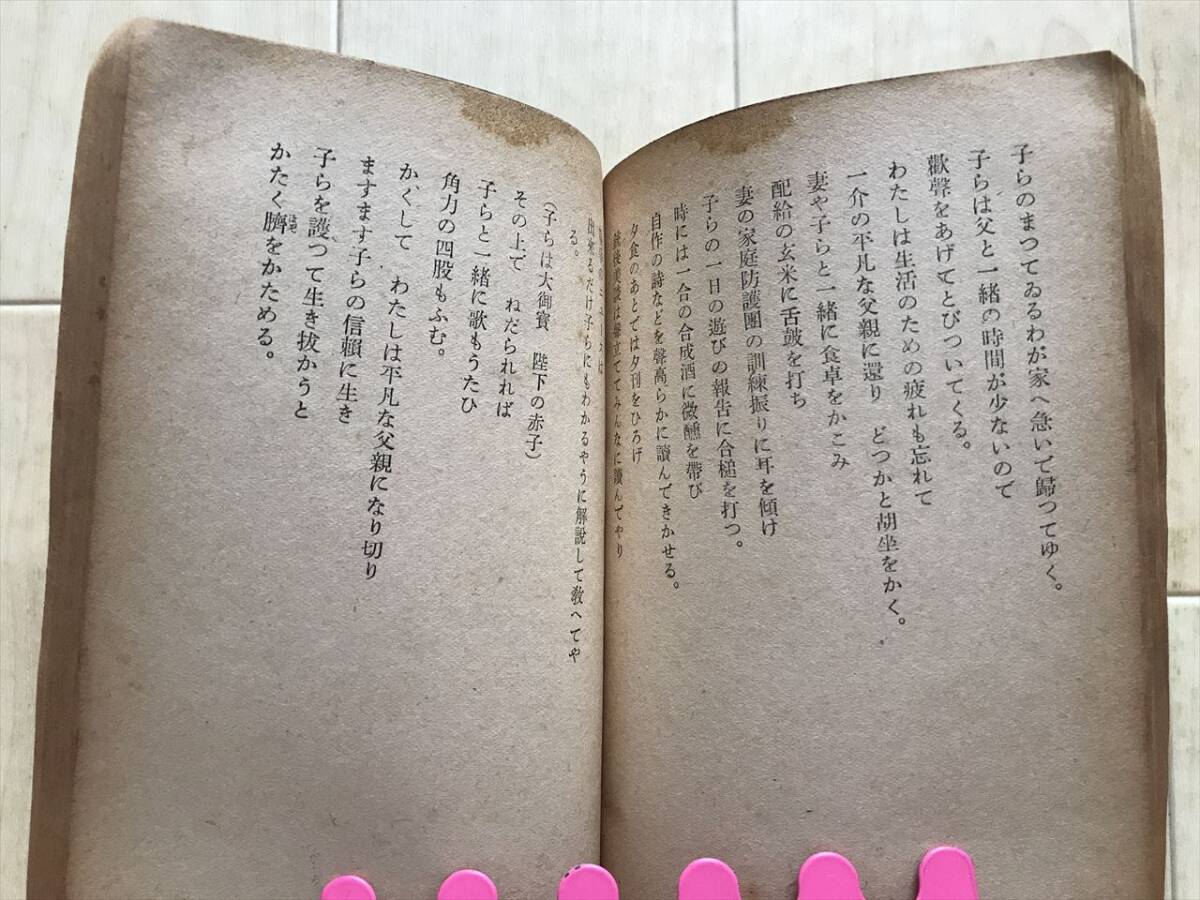 子らのまつてゐるわが家へ急いで歸つてゆく。
子らは父と一緒の時間が少ないので
歡聲をあげてとびついてくる。
わたしは生活のための疲れも忘れて
一介の平凡な父親に還り　どつかと胡坐をかく。
妻や子らと一緒に食卓をかこみ
配給の玄米に舌皷を打ち
妻の家庭防護團の訓練振りに耳を傾け
子らの一日の遊びの報告に合槌を打つ。
時には一合の合成酒に微醺を帶び
自作の詩などを聲高らかに讀んできかせる。
夕食のあとでは夕刊をひろげ
銃後美談は聲立ててみんなに讀んでやり
出來るだけ子らにもわかるやうに解說して敎へてや
る。
（子らは大御寶　陛下の赤子）
その上で　ねだられれば
子らと一緒に歌もうたひ
角力の四股もふむ。
かくして　わたしは平凡な父親になり切り
ますます子らの信賴に生き
子らを護つて生き拔かうと
かたく臍をかためる。